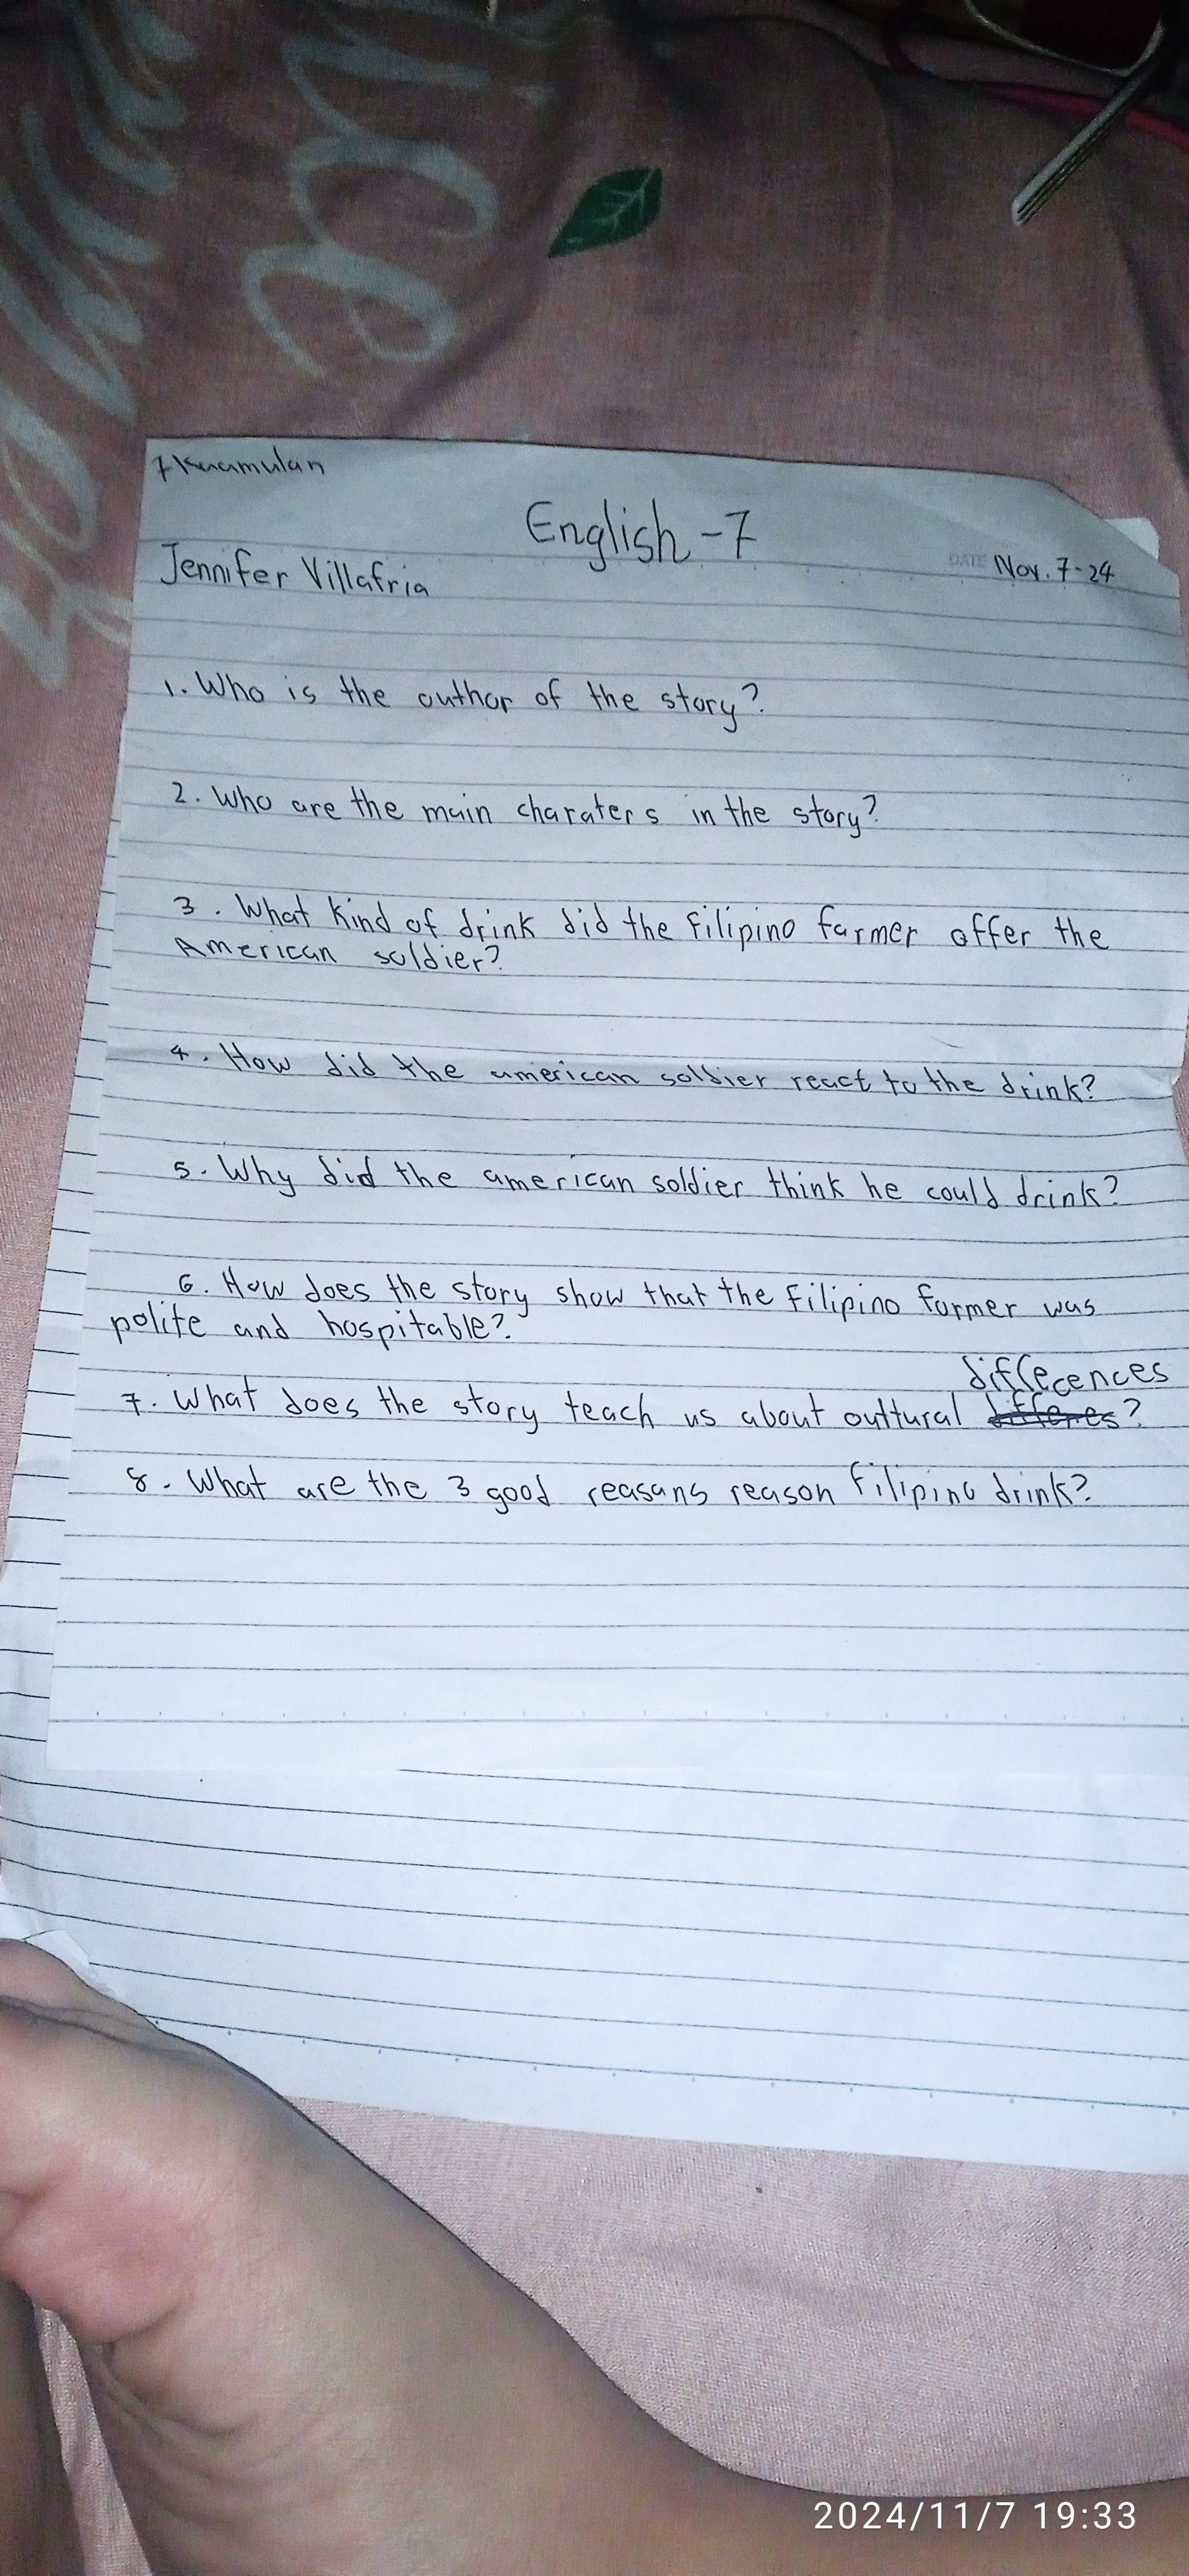 English - 7
Jennifer Villafria
DATE Nov. 7-24
1. Who is the outhor of the story?
2. Who are the main charaters in the story?
3. What kind of drink did the Filipino farmer offer the
American soldier?
4. How did the american soldier react to the drink?
5. Why did the american soldier think he could drink?
6. How does the story show that the Filipino farmer was
polite and hospitable?
differences
7. What does the story teach us about outtural ?
8. What are the 3 good reasans reason Filipino drink?
2024/11/7 19:33